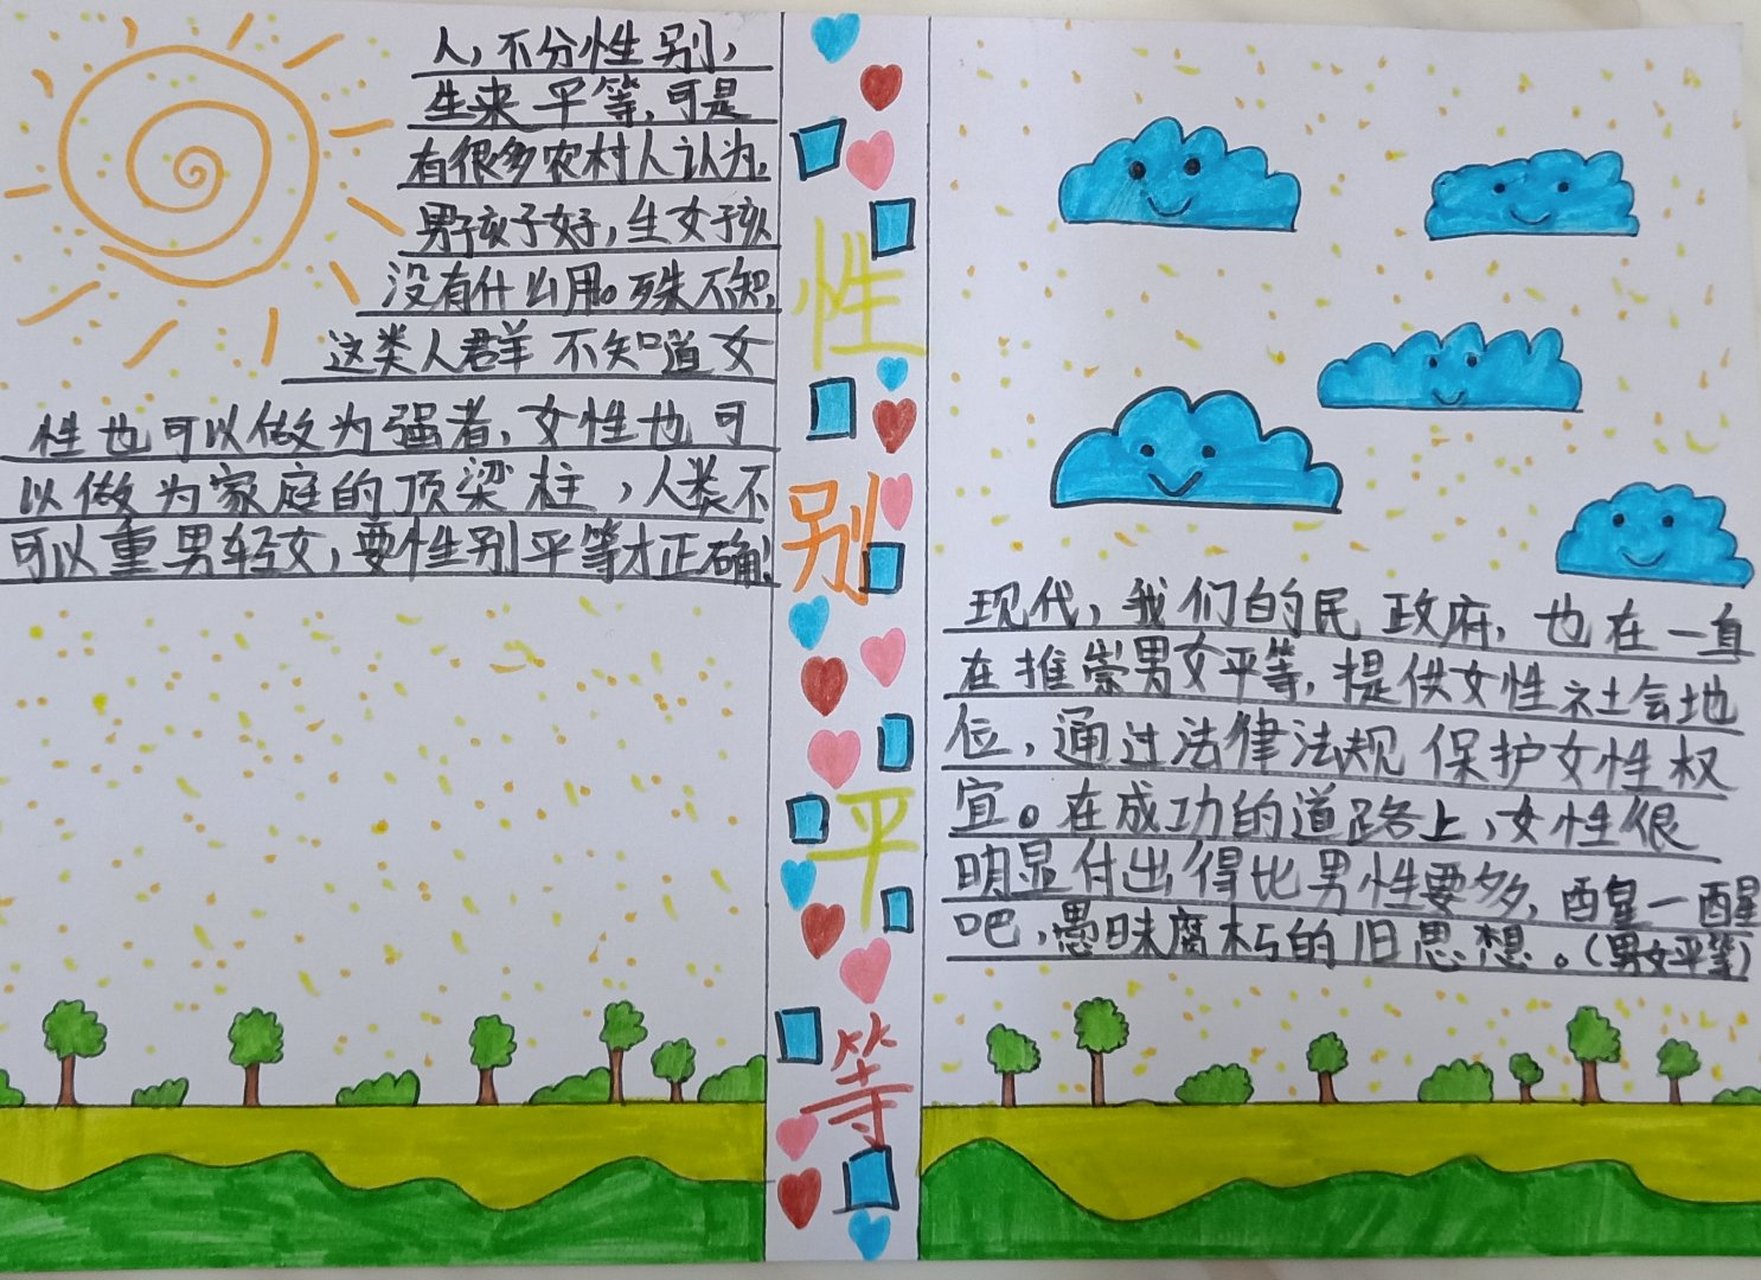 人，不分性别，
生来平等，可是
有很多农村人认为，
男孩子好，生女孩
没有什么用。殊不知，
这类人群不知道女
性也可以做为强者，女性也可
以做为家庭的顶梁柱，人类不
可以重男轻女，要性别平等才正确！
性
别
平
等
现代，我们的民政府，也在一直
在推崇男女平等，提供女性社会地
位，通过法律法规保护女性权
宜。在成功的道路上，女性很
明显付出得比男性要多，醒一醒
吧，愚昧腐朽的旧思想。（男女平等）